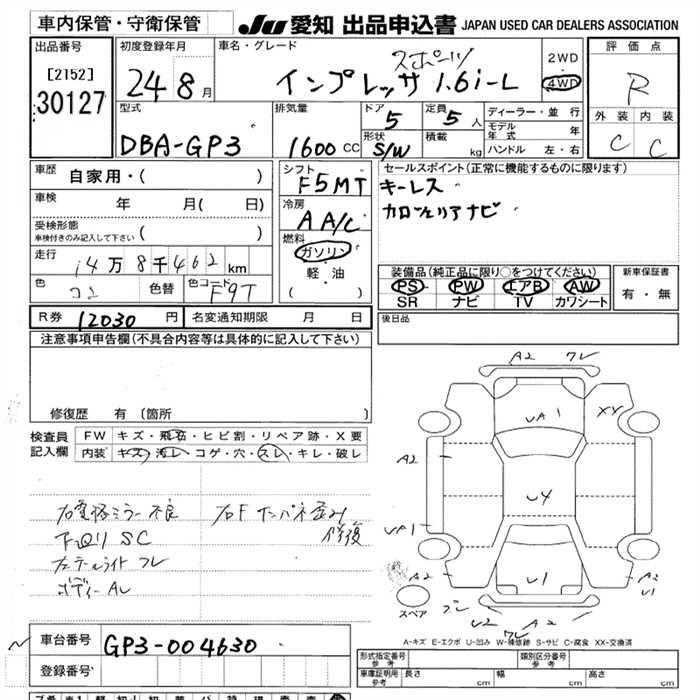 車内保管・守衛保管
JU 愛知 出品申込書 JAPAN USED CAR DEALERS ASSOCIATION
出品番号
[2152]
30127
初度登録年月
24 8月
車名・グレード
スポーツ
インプレッサ 1.6i-L
2WD
4WD
評価点
R
外装 内装
C C
型式
DBA-GP3
排気量
1600 cc
ドア
5
形状
S/W
定員
5人
積載
kg
ディーラー・並行
モデル年式 年
ハンドル 左・右
車歴
自家用・( )
車検
年 月( 日)
受検形態
車検付きのみ記入して下さい ( )
走行
14万8千462km
色
コン
色替
色コード
F9T
シフト
F5MT
冷房
AA/C
燃料
ガソリン
軽・油
( )
セールスポイント(正常に機能するものに限ります)
キーレス
カロッェリアナビ
装備品(純正品に限り○をつけてください)
PS PW エアB AW
SR ナビ TV カワシート
新車保証書
有・無
R券 12030円
名変通知期限 月 日
後日品
注意事項申告欄(不具合内容等は具体的に記入して下さい)
修復歴 有 〔箇所 〕
検査員記入欄
FW キズ・飛石・ヒビ割・リペア跡・X要
内装 キズ・汚レ・コゲ・穴・スレ・キレ・破レ
右電格ミラー不良
下回り SC
左テールライト ワレ
ボディー AU
右F インパネ歪み
修復
A2 ワレ
UA1
XY
A2
U4
UA1
U1
A2
A2
U1
スペア
U2 A2
ワレ
A-キズ E-エクボ U-凹み W-補修跡 S-サビ C-腐食 XX-交換済
車台番号
GP3-004630
登録番号
形式指定番号 参考
類別区分番号 参考
車庫証明用 参考
長さ cm
幅 cm
高さ cm